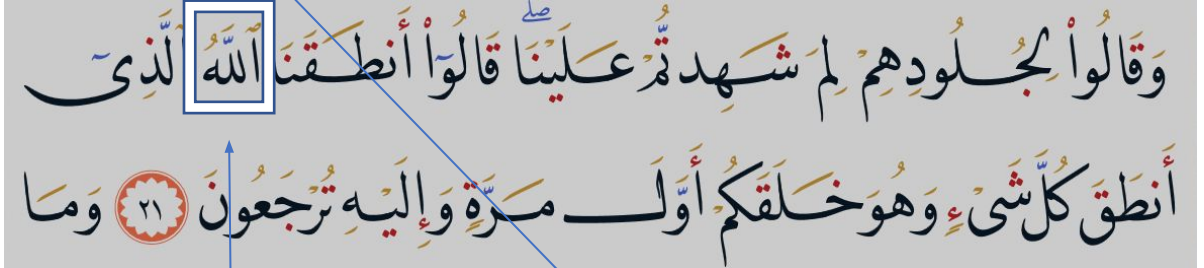 وَقَالُوا۟ لِجُلُودِهِمْ لِمَ شَهِدتُّمْ عَلَيْنَا ۖ قَالُوٓا۟ أَنطَقَنَا ٱللَّهُ ٱلَّذِىٓ
أَنطَقَ كُلَّ شَىْءٍ وَهُوَ خَلَقَكُمْ أَوَّلَ مَرَّةٍ وَإِلَيْهِ تُرْجَعُونَ ٢١ وَمَا